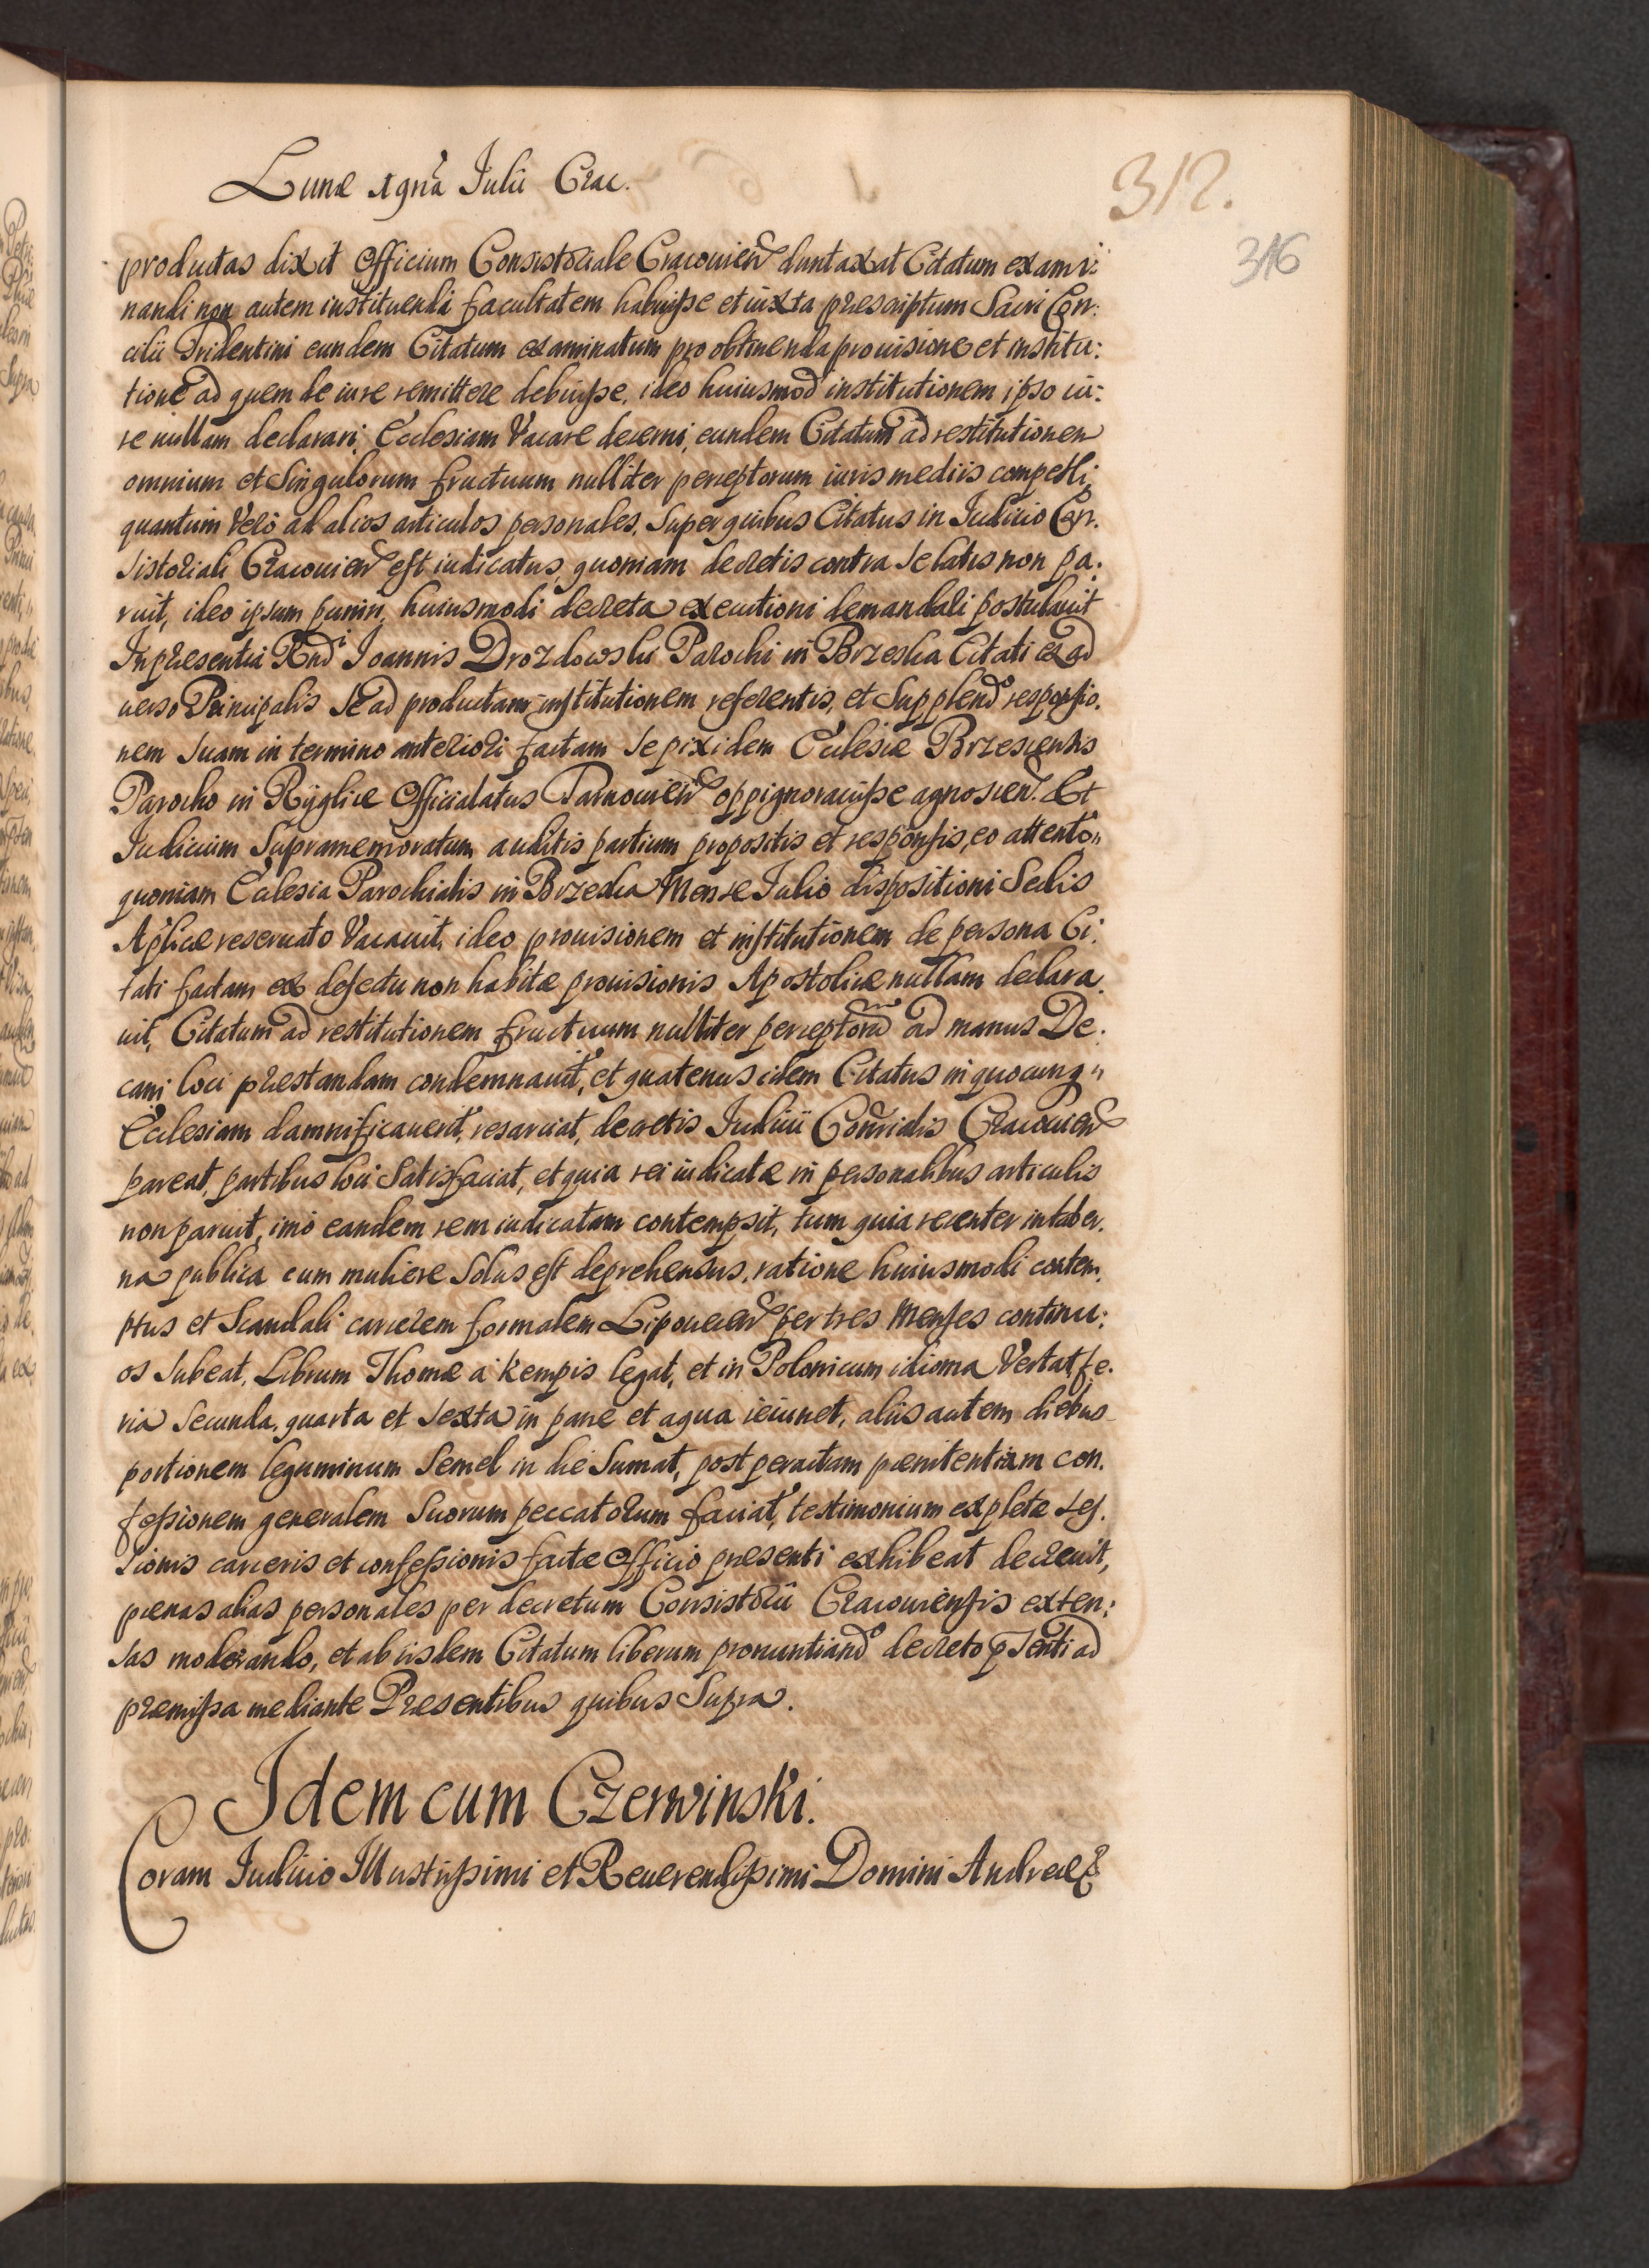 Lunæ Iulii Crac.
312.
316
productas dixit Officium Consistoriale Cracouien duntaxat Citatum exami:
nandi non autem instituendi facultatem habuisse et iuxta præscriptum Sacri Con:
cilii Tridentini eundem Citatum examinatum pro obtinenda prouisione et institu:
tione ad quem de iure remittere debuisse, ideo huiusmod institutionem ipso iu:
re nullam declarari, Ecclesiam Vacare decerni, eundem Citatum ad restitutionem
omnium et Singulorum fructuum nulliter perceptorum iuris mediis compelli,
quantum Vero ad alios articulos personales, Super quibus Citatus in Iudicio Con.
sistoriali Cracouien est iudicatus, quoniam decretis contra Se latis non pa.
ruit, ideo ipsum puniri, huiusmodi decreta executioni demandari postulauit
In præsentia Rndi Ioannis Drozdowski Parochi in Brzeska Citati ex ad
uerso Principalis Se ad productam institutionem referentis, et Supplendo responsio.
nem Suam in termino anteriori factam Se pixidem Ecclesiæ Brzescensis
Parocho in Ryglice Officialatus Tarnouien oppignorauisse agnoscen. Et
Iudicium Supramemoratum auditis partium propositis et responsis, eo attento,
quoniam Ecclesia Parochialis in Brzeska Mense Iulio dispositioni Sedis
Aplicæ reseruato Vacauit, ideo prouisionem et institutionem de persona Ci.
tati factam ex defectu non habitæ prouisionis Apostolicæ nullam declara.
uit, Citatum ad restitutionem fructuum nulliter perceptoru ad manus De.
cani loci præstandam condemnauit, et quatenus idem Citatus in quocunq
Ecclesiam damnificauerit, resarciat, decretis Iudicii Conrialis Cracouien
pareat, partibus loci Satisfaciat, et quia rei iudicatæ in personalibus articulis
non paruit, imò eandem rem iudicatam contempsit, tum quia recenter in taber.
na publica cum muliere Solus est deprehensus, ratione huiusmodi contem.
ptus et Scandali carcerem formalem Lipouecen per tres Menses continu:
os Subeat, Librum Thomæ à Kempis legat, et in Polonicum idioma Vertat, fe.
ria Secunda, quarta et Sexta in pane et aqua ieiunet, aliis autem diebus
portionem leguminum Semel in die Sumat, post peractam pænitentiam con.
fessionem generalem Suorum peccatorum faciat, testimonium expletæ ses.
sionis carceris et confessionis factæ Officio præsenti exhibeat decreuit,
pænas alias personales per decretum Consistorii Cracouiensis exten:
sas moderando, et ab iisdem Citatum liberum pronuntiando decreto pnti ad
præmissa mediante Præsentibus quibus Supra.
Idem cum Czerwinski.
Coram Iudicio Illustrissimi et Reuerendissimi Domini Andreæ